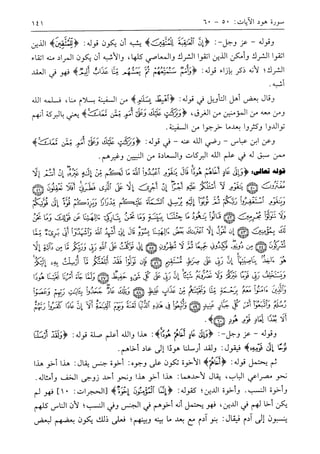 سورة هود الآيات: ٥٠ - ٦٠
١٤١
وقوله - عز وجل -: ﴿إِنَّ ٱلْعَٰقِبَةَ لِلْمُتَّقِينَ﴾ يشبه أن يكون قوله: ﴿لِلْمُتَّقِينَ﴾ الذين
اتقوا الشرك وأمكن الذين اتقوا الشرك والمعاصي كلها، والأشبه أن يكون المراد منه اتقاء
الشرك؛ لأنه ذكر بإزاء قوله: ﴿وَأُمَمٌ سَنُمَتِّعُهُمْ ثُمَّ يَمَسُّهُم مِّنَّا عَذَابٌ أَلِيمٌ﴾ فهو في العقد
أشبه.
وقال بعض أهل التأويل في قوله: ﴿ٱهْبِطْ بِسَلَٰمٍ﴾ من السفينة بسلام منا، فسلمه الله
ومن معه من المؤمنين من الغرق، ﴿وَبَرَكَٰتٍ عَلَيْكَ وَعَلَىٰٓ أُمَمٍ مِّمَّن مَّعَكَ﴾ يعني بالبركة أنهم
توالدوا وكثروا بعدما خرجوا من السفينة.
وعن ابن عباس - رضي الله عنه - في قوله: ﴿وَبَرَكَٰتٍ عَلَيْكَ وَعَلَىٰٓ أُمَمٍ مِّمَّن مَّعَكَ﴾
ممن سبق له في علم الله البركات والسعادة من النبيين وغيرهم.
قوله تعالى: ﴿وَإِلَىٰ عَادٍ أَخَاهُمْ هُودًا قَالَ يَٰقَوْمِ ٱعْبُدُوا۟ ٱللَّهَ مَا لَكُم مِّنْ إِلَٰهٍ غَيْرُهُۥٓ إِنْ أَنتُمْ إِلَّا
مُفْتَرُونَ ﴿٥٠﴾ يَٰقَوْمِ لَآ أَسْـَٔلُكُمْ عَلَيْهِ أَجْرًا إِنْ أَجْرِىَ إِلَّا عَلَى ٱلَّذِى فَطَرَنِىٓ أَفَلَا تَعْقِلُونَ ﴿٥١﴾
وَيَٰقَوْمِ ٱسْتَغْفِرُوا۟ رَبَّكُمْ ثُمَّ تُوبُوٓا۟ إِلَيْهِ يُرْسِلِ ٱلسَّمَآءَ عَلَيْكُم مِّدْرَارًا وَيَزِدْكُمْ قُوَّةً إِلَىٰ قُوَّتِكُمْ
وَلَا تَتَوَلَّوْا۟ مُجْرِمِينَ ﴿٥٢﴾ قَالُوا۟ يَٰهُودُ مَا جِئْتَنَا بِبَيِّنَةٍ وَمَا نَحْنُ بِتَارِكِىٓ ءَالِهَتِنَا عَن قَوْلِكَ وَمَا نَحْنُ
لَكَ بِمُؤْمِنِينَ ﴿٥٣﴾ إِن نَّقُولُ إِلَّا ٱعْتَرَىٰكَ بَعْضُ ءَالِهَتِنَا بِسُوٓءٍ قَالَ إِنِّىٓ أُشْهِدُ ٱللَّهَ وَٱشْهَدُوٓا۟ أَنِّى بَرِىٓءٌ مِّمَّا
تُشْرِكُونَ ﴿٥٤﴾ مِن دُونِهِۦ فَكِيدُونِى جَمِيعًا ثُمَّ لَا تُنظِرُونِ ﴿٥٥﴾ إِنِّى تَوَكَّلْتُ عَلَى ٱللَّهِ رَبِّى وَرَبِّكُم مَّا مِن دَآبَّةٍ إِلَّا
هُوَ ءَاخِذٌۢ بِنَاصِيَتِهَآ إِنَّ رَبِّى عَلَىٰ صِرَٰطٍ مُّسْتَقِيمٍ ﴿٥٦﴾ فَإِن تَوَلَّوْا۟ فَقَدْ أَبْلَغْتُكُم مَّآ أُرْسِلْتُ بِهِۦٓ إِلَيْكُمْ
وَيَسْتَخْلِفُ رَبِّى قَوْمًا غَيْرَكُمْ وَلَا تَضُرُّونَهُۥ شَيْـًٔا إِنَّ رَبِّى عَلَىٰ كُلِّ شَىْءٍ حَفِيظٌ ﴿٥٧﴾ وَلَمَّا جَآءَ أَمْرُنَا نَجَّيْنَا هُودًا
وَٱلَّذِينَ ءَامَنُوا۟ مَعَهُۥ بِرَحْمَةٍ مِّنَّا وَنَجَّيْنَٰهُم مِّنْ عَذَابٍ غَلِيظٍ ﴿٥٨﴾ وَتِلْكَ عَادٌ جَحَدُوا۟ بِـَٔايَٰتِ رَبِّهِمْ وَعَصَوْا۟
رُسُلَهُۥ وَٱتَّبَعُوٓا۟ أَمْرَ كُلِّ جَبَّارٍ عَنِيدٍ ﴿٥٩﴾ وَأُتْبِعُوا۟ فِى هَٰذِهِ ٱلدُّنْيَا لَعْنَةً وَيَوْمَ ٱلْقِيَٰمَةِ أَلَآ إِنَّ عَادًا كَفَرُوا۟ رَبَّهُمْ
أَلَا بُعْدًا لِّعَادٍ قَوْمِ هُودٍ ﴿٦٠﴾﴾.
وقوله - عز وجل -: ﴿وَإِلَىٰ عَادٍ أَخَاهُمْ هُودًا﴾: هذا والله أعلم صلة قوله: ﴿وَلَقَدْ أَرْسَلْنَا
نُوحًا إِلَىٰ قَوْمِهِۦٓ﴾ فيقول: ولقد أرسلنا هودًا إلى عاد أخاهم.
ثم يحتمل قوله: ﴿أَخَاهُمْ﴾ الأخوة تكون على وجوه: أخوة جنس يقال: هذا أخو هذا
نحو مصراعي الباب، يقال لأحدهما: هذا أخو هذا ونحو أحد زوجي الخف وأمثاله.
وأخوة النسب، وأخوة الدين؛ كقوله: ﴿إِنَّمَا ٱلْمُؤْمِنُونَ إِخْوَةٌ﴾ [الحجرات: ١٠] فهو لم
يكن أخا لهم في الدين، فهو يحتمل أنه أخوهم في الجنس وفي النسب؛ لأن الناس كلهم
ينسبون إلى آدم فيقال: بنو آدم مع بعد ما بينه وبينهم؛ فعلى ذلك يكون بعضهم لبعض